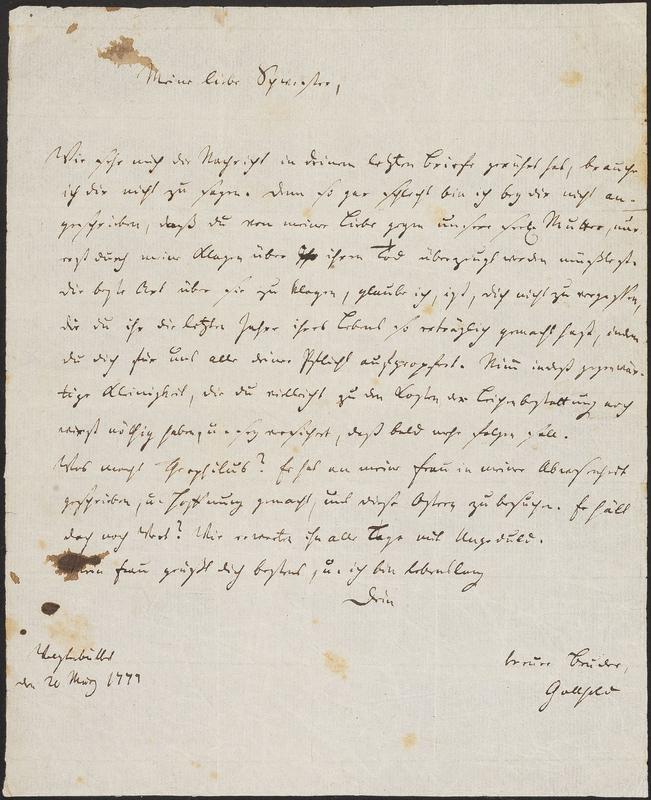 Meine liebe Schwester,
Wie sehr mich die Nachricht in deinem letzten Briefe gerührt hat, brauche
ich dir nicht zu sagen. Denn so gar schlecht bin ich bey dir nicht an-
geschrieben, daß du von meiner Liebe gegen unsere seel. Mutter, nur
erst durch meine Klagen über ihren Tod überzeugt werden müßtest.
Die beste Art über sie zu klagen, glaube ich, ist, dich nicht zu vergessen,
die du ihr die letzten Jahre ihres Lebens so erträglich gemacht hast, indem
du dich für uns alle deiner Pflicht aufgeopfert. Nim indeß gegenwär-
tige Kleinigkeit, die du vielleicht zu den Kosten der Leichenbestattung noch
wirst nöthig haben, u. sey versichert, daß bald mehr folgen soll.
Was macht Theophilus? Er hat an meine Frau in meiner Abwesenheit
geschrieben, u. Hoffnung gemacht, uns diese Ostern zu besuchen. Er hält
doch noch Wort? Wir erwarten ihn alle Tage mit Ungeduld.
Meine Frau grüßt dich bestens, u. ich bin Lebenslang
Dein
Wolfenbüttel
den 20 März 1777
treuer Bruder,
Gotthold